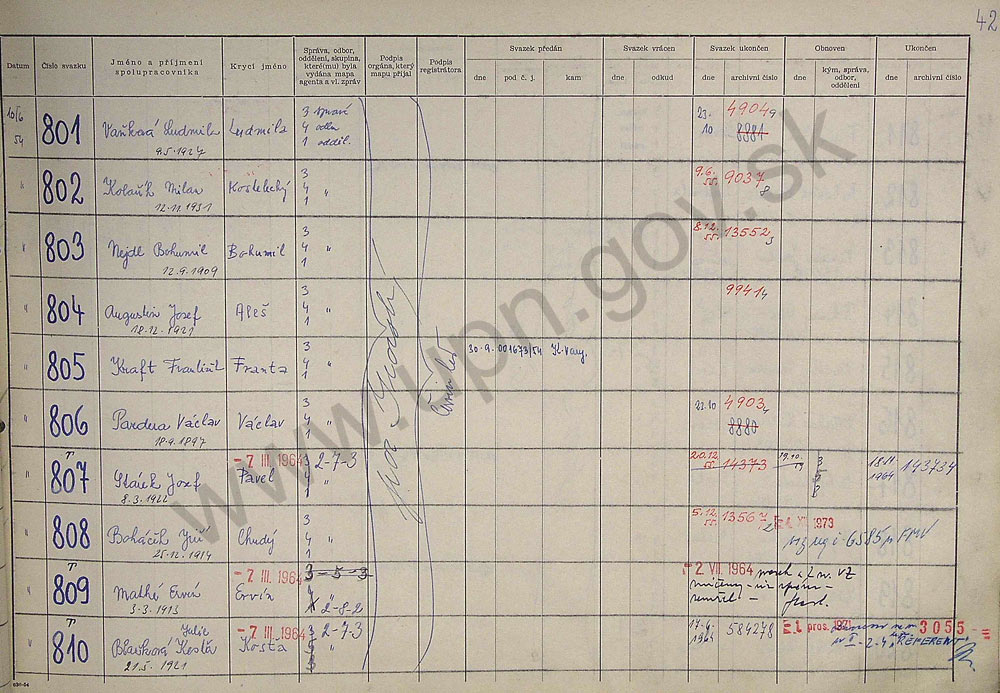 42
Datum
Číslo svazku
Jméno a příjmení
spolupracovníka
Krycí jméno
Správa, odbor,
oddělení, skupina,
které(mu) byla
vydána mapa
agenta a vl. zpráv
Podpis
orgána, který
mapu přijal
Podpis
registrátora
Svazek předán
dne
pod č. j.
kam
Svazek vrácen
dne
odkud
Svazek ukončen
dne
archivní číslo
Obnoven
dne
kým, správa,
odbor,
oddělení
Ukončen
dne
archivní číslo
10/6
54
801
Vaňková Ludmila
9.5.1927
Ludmila
3 správa
4 odbor
1 odděl.
23.
10
49049
8881
" 802
Kolařík Milan
12.11.1931
Kostelecký
3
4 "
1
9.6.
55.
90378
" 803
Nejdl Bohumil
12.9.1909
Bohumil
3
4 "
1
8.12.
55.
135523
" 804
Augustin Josef
18.12.1921
Aleš
3
4 "
1
99414
" 805
Kraft František
Franta
3
4 "
1
30.9. 001673/54 K. Vary,
" 806
Pandera Václav
18.9.1897
Václav
3
4 "
1
22.10
49034
8880
" 807
Stárek Josef
8.3.1922
- 7 III. 1964
Pavel
3 2-7-3
4 "
1
20.12.
55.
14373
19.10.
59
3
18.11
1964
143734
" 808
Boháčik Jiří
25.12.1914
Chudý
3
4 "
1
5.12.
55.
135672
XI. 1973
viz reg. č. 6585 FMV
" 809
Mathé Ervín
3.3.1913
- 7 III. 1964
Ervín
3-5-3
4 "
1 2-8-2
- 2 VII. 1964
zničeny
zemřel -
" 810
Julie
Blaňková Kesta
21.5.1921
- 7 III. 1964
Kosta
3 2-7-3
17.4.
1964
584278
1 pros. 1971
3055
REFERENT
www.upn.gov.sk